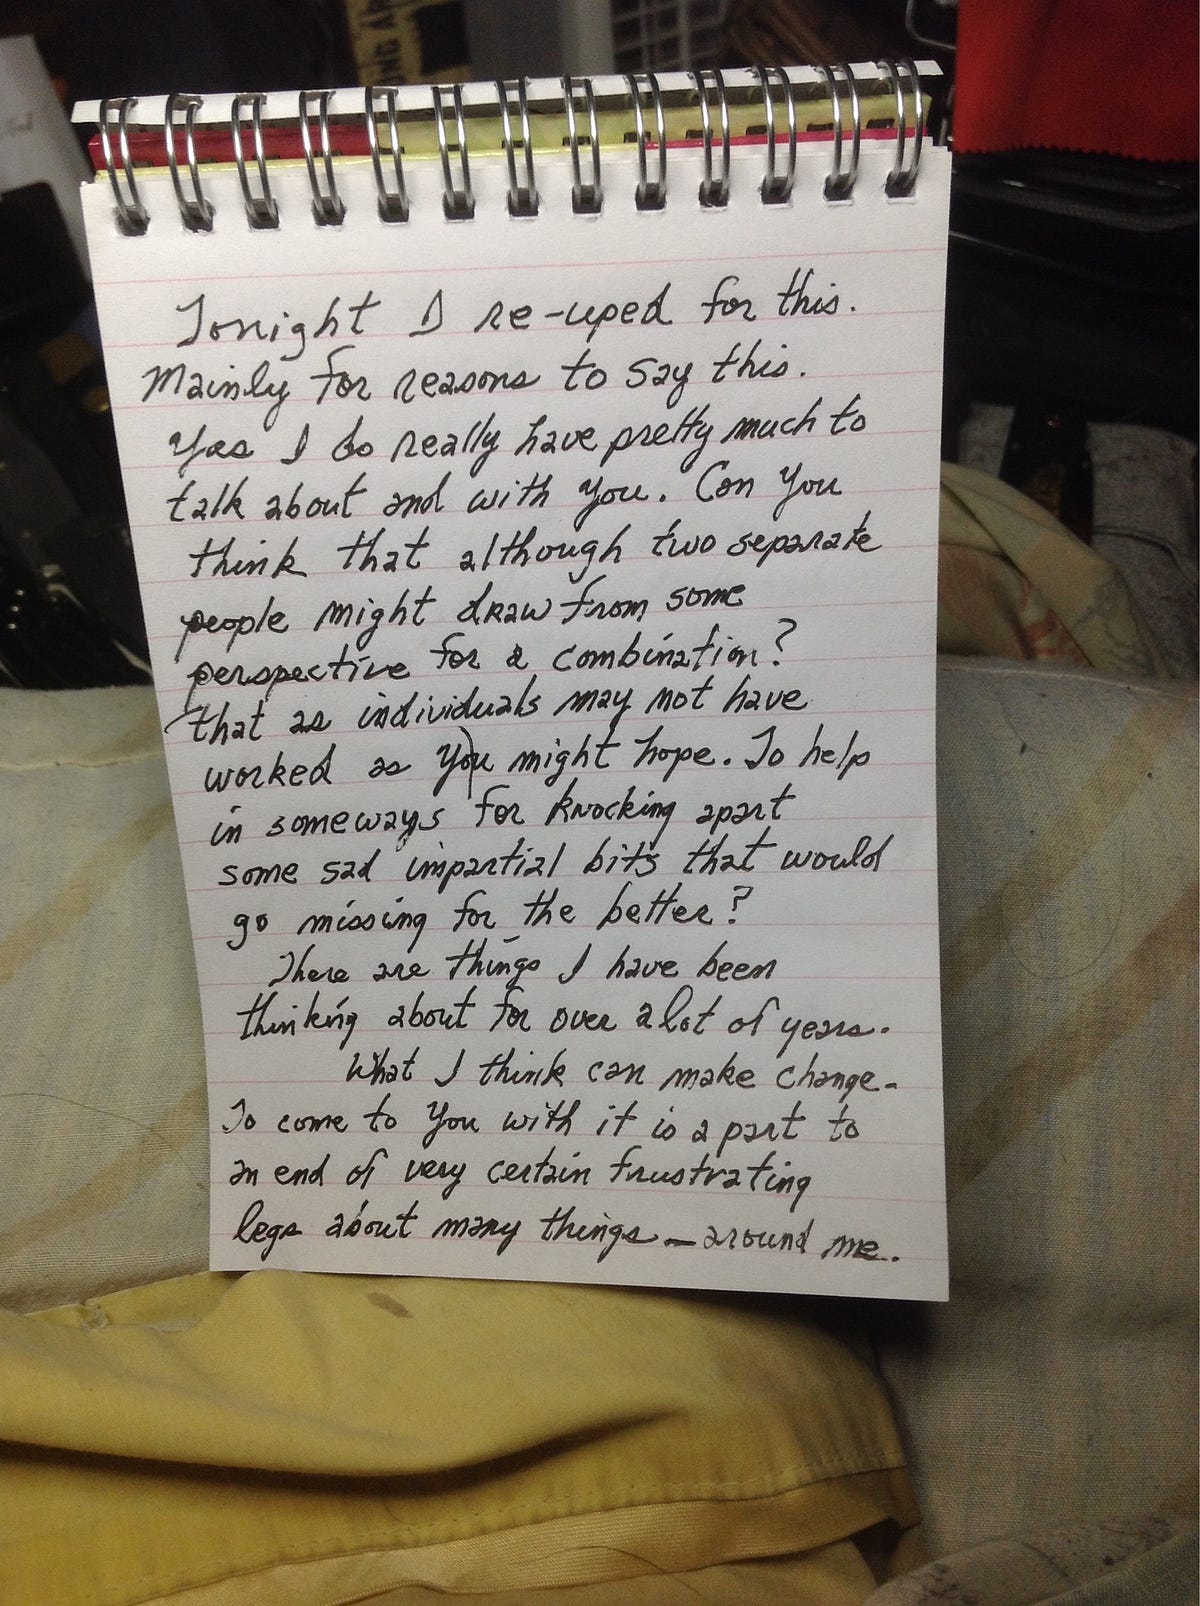 ONG AR
Tonight I re-uped for this.
Mainly for reasons to say this.
Yes I do really have pretty much to
talk about and with you. Can you
think that although two separate
people might draw from some
perspective for a combination?
that as individuals may not have
worked as you might hope. To help
in someways for knocking apart
some sad impartial bits that would
go missing for the better?
There are things I have been
thinking about for over a lot of years.
What I think can make change-
To come to you with it is a part to
an end of very certain frustrating
legs about many things - around me.